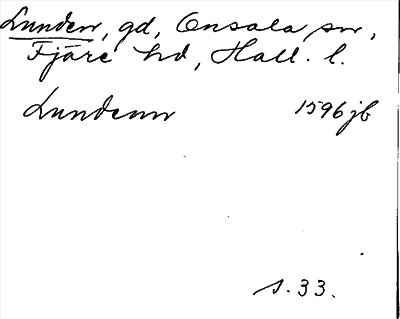 Lunden, gd, Onsala sn,
Fjäre hd, Hall. l.
Lundenn 1596 jb
s. 33.